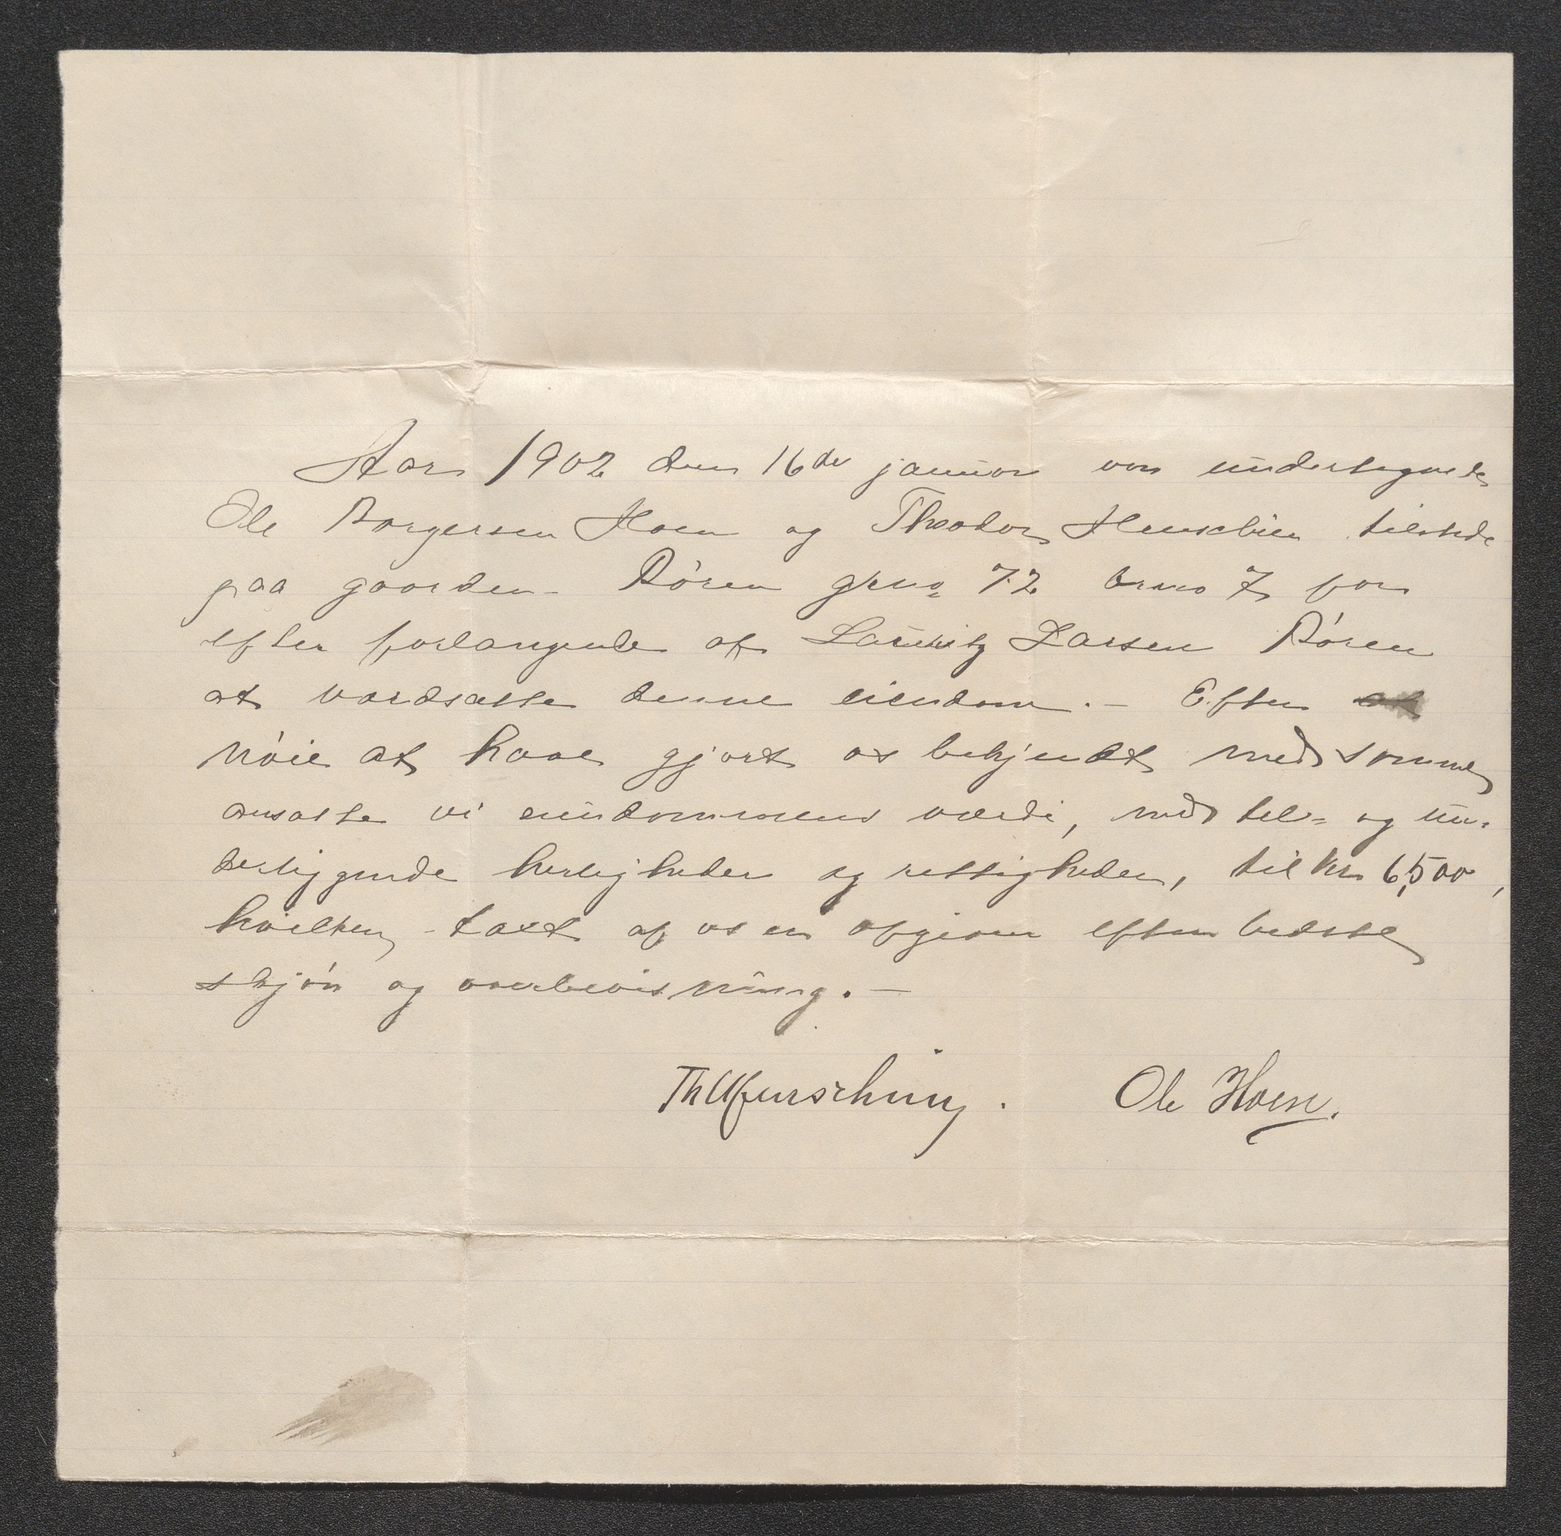 Aar 1902 den 16de januar var undertegnede
Ole Borgersen Hoen og Theodor tilstede
paa gaarden Børen gr no 72 br no 7 for
efter forlangende af Lauritz Larsen Børen
at værdsætte denne eiendom. - Efter
nøie at have gjort os bekjendt med samme
ansatte vi eiendommens værdi, med til- og un-
derliggende herligheder og rettigheder, til kr 6,500,
hvilken taxt af os er afgiven efter bedste
skjøn og overbevisning. -
Ole Hoen.